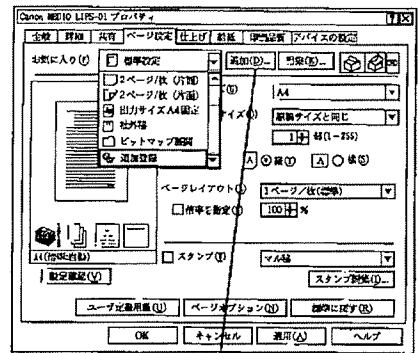 Canon MEDIO LIPS-D1 プロパティ
全般 詳細 共有 ページ設定 仕上げ 給紙 印刷品質 デバイスの設定
お気に入り(F) 標準設定 追加(D)... 編集(E)...
2ページ/枚 (片面)
2ページ/枚 (両面)
出力サイズA4固定
社外秘
ビットマップ展開
追加登録
A4
原稿サイズと同じ
1 部(1-255)
A 縦(T) A 横(S)
ページレイアウト(L) 1ページ/枚(標準)
倍率を指定 100 %
スタンプ マル秘
設定確認(V)
スタンプ編集(I)...
ユーザ定義用紙(U) ページオプション(N) 標準に戻す(R)
OK キャンセル 適用(A) ヘルプ